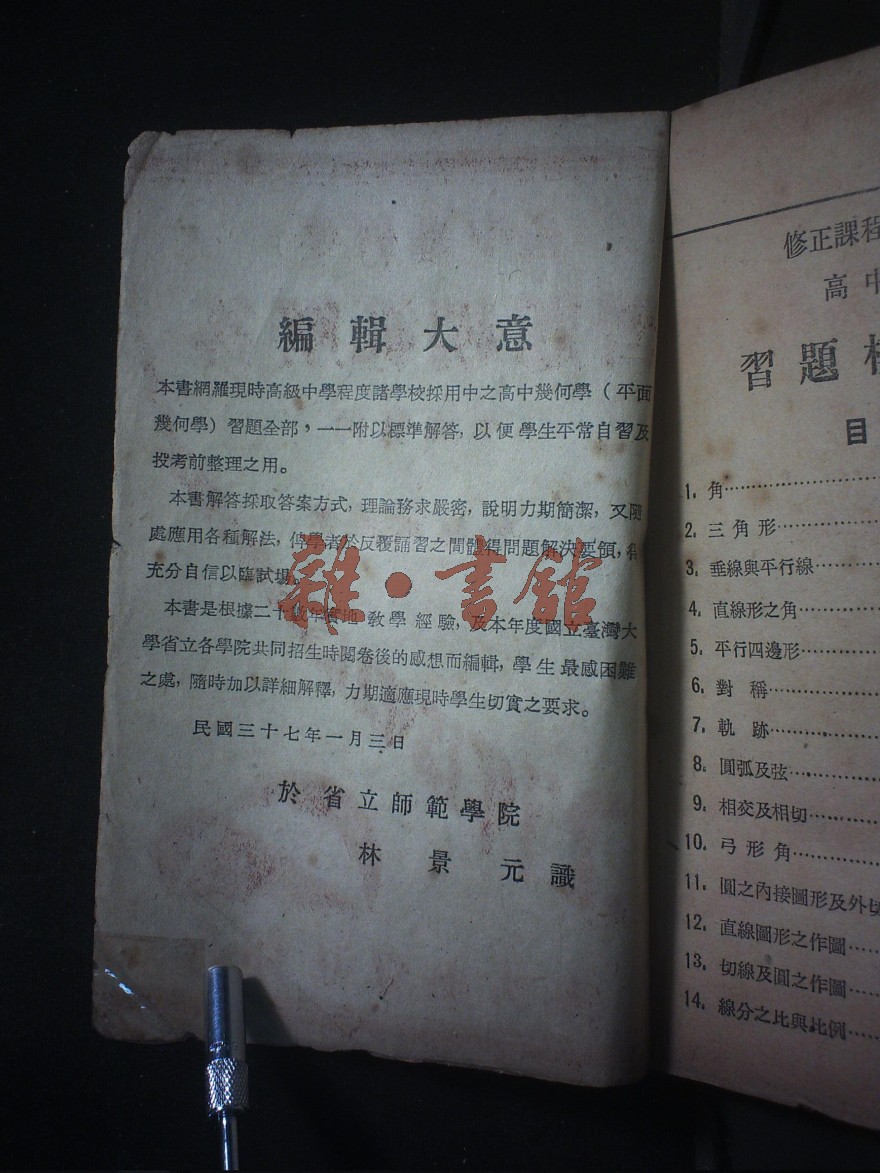 編輯大意
本書網羅現時高級中學程度諸學校採用中之高中幾何學(平面
幾何學)習題全部,一一附以標準解答,以便學生平常自習及
投考前整理之用。
本書解答採取答案方式,理論務求嚴密,說明力期簡潔,又隨
處應用各種解法,俾學者於反覆誦習之間體得問題解決要領,
充分自信以臨試場。
本書是根據二十數年實地敎學經驗,及本年度國立臺灣大
學省立各學院共同招生時閱卷後的感想而編輯,學生最感困難
之處,隨時加以詳細解釋,力期適應現時學生切實之要求。
民國三十七年一月三日
於省立師範學院
林景元識
雜·書館
修正課程
高中
習題
目
1. 角
2. 三角形
3. 垂線與平行線
4. 直線形之角
5. 平行四邊形
6. 對稱
7. 軌跡
8. 圓弧及弦
9. 相交及相切
10. 弓形角
11. 圓之內接圖形及外切
12. 直線圖形之作圖
13. 切線及圓之作圖
14. 線分之比與比例